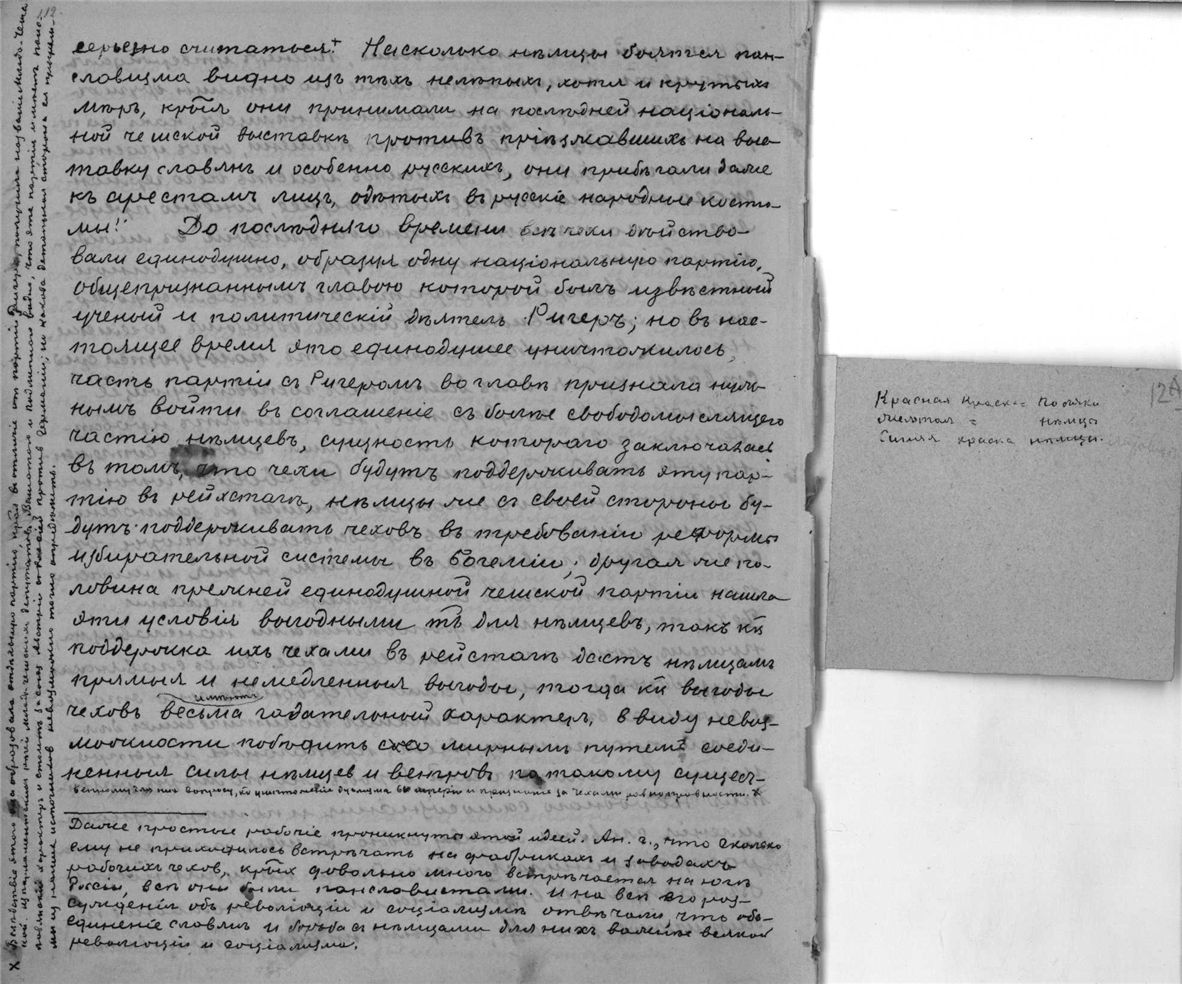 112.
серьезно считаться+ Насколько нѣмцы боятся пан-
словизма видно изъ тѣхъ нелѣпыхъ, хотя и крутыхъ
мѣръ, крыя они принимали на послѣдней націоналъ-
ной чешской выставкѣ противъ пріѣзжавшихъ на выс-
тавку славянъ и особенно русскихъ, они прибѣгали даже
къ арестамъ лицъ, одѣтыхъ въ русскіе народные костю-
мы! До послѣдняго времени всѣ чехи дѣйство-
вали единодушно, образуя одну національную партію,
общепризнаннымъ главою которой былъ извѣстный
ученый и политическій дѣятель Ригеръ; но въ нас-
тоящее время это единодушее уничтожилось,
часть партіи съ Ригеромъ во главѣ признала нуж-
нымъ войти въ соглашеніе съ болѣе свободомыслящего
частію нѣмцевъ, сущность котораго заключалась
въ томъ, что чехи будутъ поддерживать эту пар-
тію въ рейхстагѣ, нѣмцы же съ своей стороны бу-
дутъ поддерживать чеховъ въ требованіи реформы
избирательной системы въ Богеміи; другая же по-
ловина прежней единодушной чешской партіи нашла
эти условія выгодными тъ для нѣмцевъ, такъ кк
поддержка ихъ чехами въ рейстагѣ дастъ нѣмцамъ
прямыя и немедленныя выгоды, тогда кк выгоды
имѣютъ
чеховъ весьма гадательной характеръ, въ виду невоз-
можности побѣдить мирнымъ путемъ соеди-
ненныя силы нѣмцев и венгровъ по такому сущес-
твенному для нихъ вопросу, кк уничтоженіе дуализма въ и признаніе за чехами равноправности. х
Даже простые рабочіе проникнуты этой идеей. Ан. г., что сколько
ему не приходилось встрѣчать на фабрикахъ и заводахъ
рабочихъ чехов, крыхъ довольно много встрѣчается на югѣ
Россіи, всѣ они были панславистами. И на всѣ его роз-
сужденія объ революціи и соціализмѣ отвѣчали, что объ-
единеніе славян и борьба съ нѣмцами для них важнѣе всякой
революціи и соціализма.
х Вслѣдствіе этого она образовала отдѣльную партію, края въ отличіе отъ партіи Ригера, получила названіе Младо-Чешс-
кой.
мы изъ нашихъ источниковъ невозможно точно опредѣлить.
12А
Красная краска = поляки
нѣмцы
Синяя краска нѣмцы.